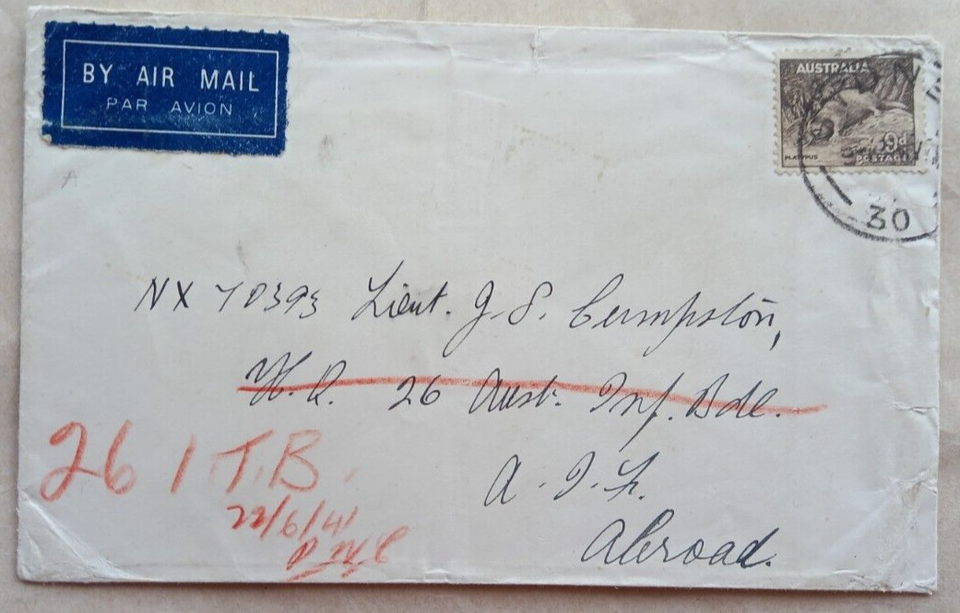 BY AIR MAIL
PAR AVION
AUSTRALIA
PLATYPUS
9d
POSTAGE
30
NX 70393 Lieut. J. S. Cumpston,
H.Q. 26 Aust. Inf. Bde.
A.I.F.
Abroad.
26 I.T.B.
22/6/41